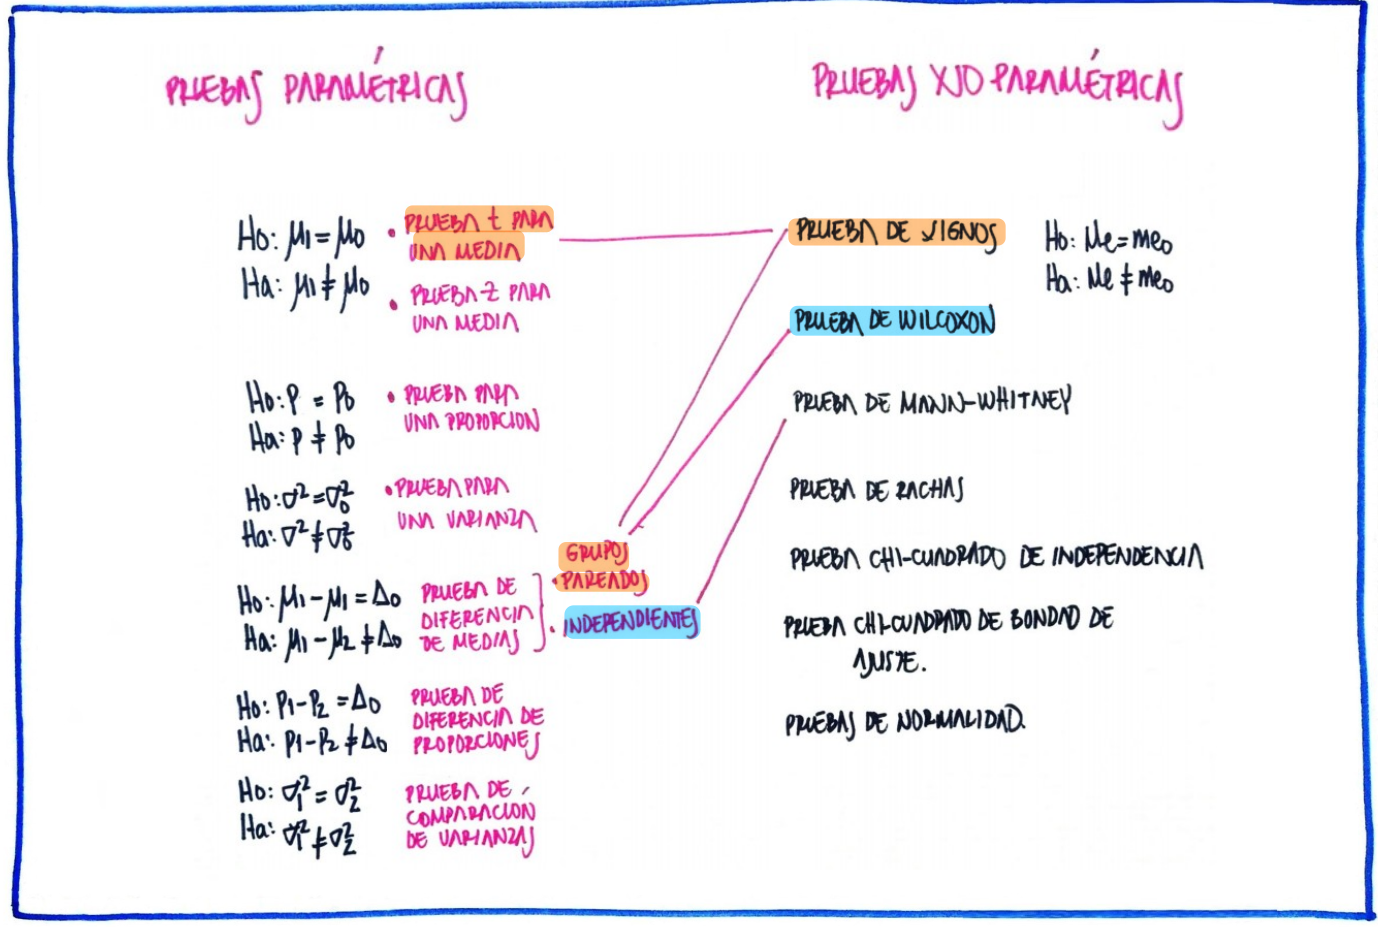 PRUEBAS PARAMÉTRICAS
Ho: μ1 = μ0
Ha: μ1 ≠ μ0
• PRUEBA t PARA
UNA MEDIA
• PRUEBA Z PARA
UNA MEDIA
Ho: P = P0
Ha: P ≠ P0
• PRUEBA PARA
UNA PROPORCION
Ho: σ² = σ0²
Ha: σ² ≠ σ0²
• PRUEBA PARA
UNA VARIANZA
Ho: μ1 - μ1 = Δ0
Ha: μ1 - μ2 ≠ Δ0
PRUEBA DE
DIFERENCIA
DE MEDIAS
GRUPOS
• PAREADOS
• INDEPENDIENTES
Ho: P1 - P2 = Δ0
Ha: P1 - P2 ≠ Δ0
PRUEBA DE
DIFERENCIA DE
PROPORCIONES
Ho: σ1² = σ2²
Ha: σ1² ≠ σ2²
PRUEBA DE
COMPARACION
DE VARIANZAS
PRUEBAS NO PARAMÉTRICAS
PRUEBA DE SIGNOS
Ho: Me = me0
Ha: Me ≠ me0
PRUEBA DE WILCOXON
PRUEBA DE MANN-WHITNEY
PRUEBA DE RACHAS
PRUEBA CHI-CUADRADO DE INDEPENDENCIA
PRUEBA CHI-CUADRADO DE BONDAD DE
AJUSTE.
PRUEBAS DE NORMALIDAD.